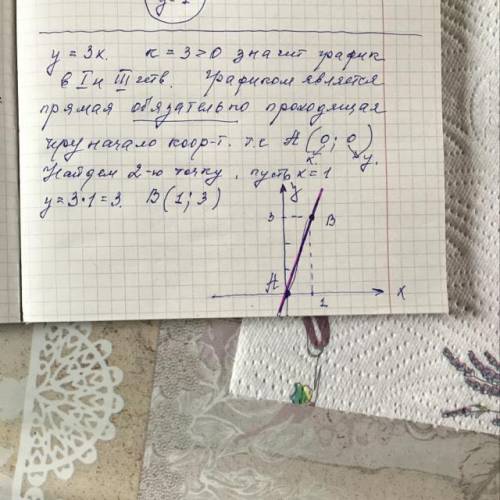 y = 3x. k = 3 > 0 значит график
в I и III четв. Графиком является
прямая обязательно проходящая
через начало коор-т. т.е A (0; 0)
x. y.
Найдем 2-ю точку, пусть x = 1
y = 3·1 = 3. B (1; 3)
y
3
B
A
1
x